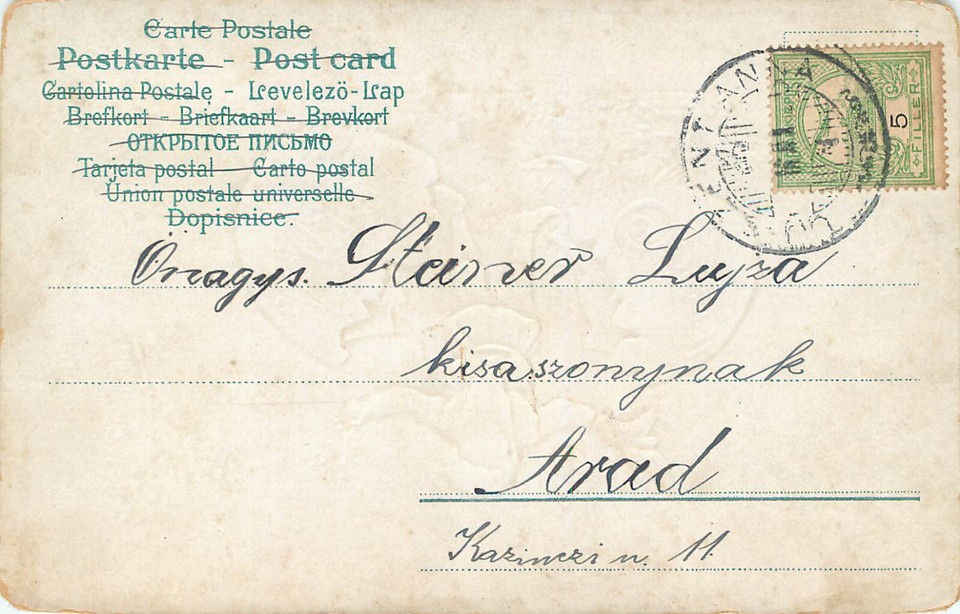 Carte Postale
Postkarte - Post card
Cartolina Postale - Levelező-Lap
Brefkort - Briefkaart - Brevkort
ОТКРЫТОЕ ПИСЬМО
Tarjeta postal - Carto postal
Union postale universelle
Dopisnice.
5
FILLÉR
Őnagys. Steiner Lujza
kisaszonynak
Arad
Kazinczi u. 11.